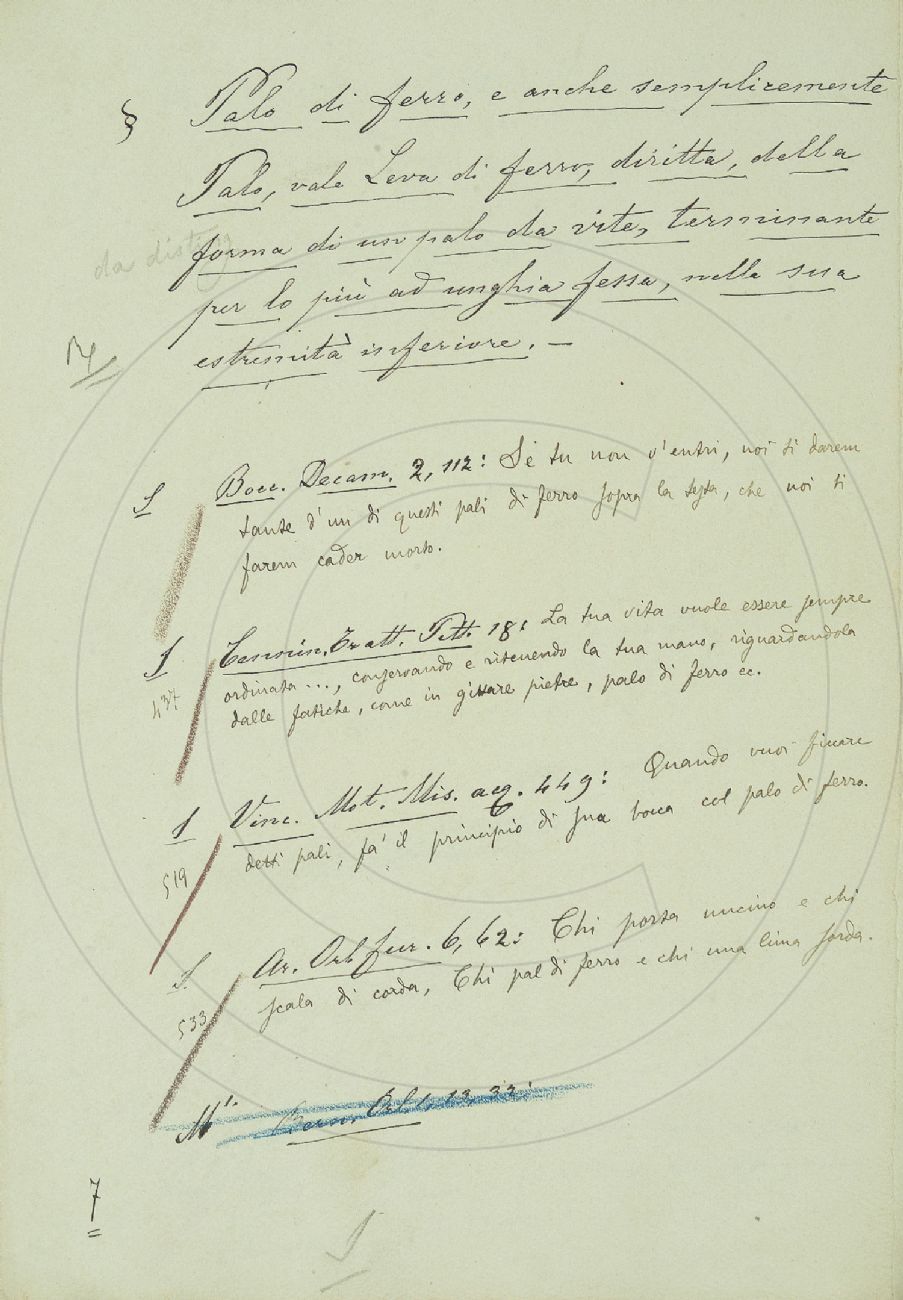 § Palo di ferro, e anche semplicemente
Palo, vale Leva di ferro, diritta, della
forma di un palo da vite, terminante
da
per lo più ad unghia fessa, nella sua
estremità inferiore. —
S Bocc. Decam. 2, 112: Se tu non v'entri, noi ti darem
tante d'un di questi pali di ferro sopra la testa, che noi ti
farem cader morto.
S Cennin. Tratt. Pitt. 18: La tua vita vuole essere sempre
ordinata..., conservando e ritenendo la tua mano, riguardandola
437
dalle fatiche, come in gittare pietre, palo di ferro ec.
S Vinc. Mot. Mis. acq. 449: Quando vuoi ficcare
detti pali, fa' il principio di sua bocca col palo di ferro.
519
S Ar. Orl. fur. 6, 62: Chi porta uncino e chi
scala di corda, Chi pal di ferro e chi una lima sorda.
533
Bern. Orl. 1, 13, 33:
7
S